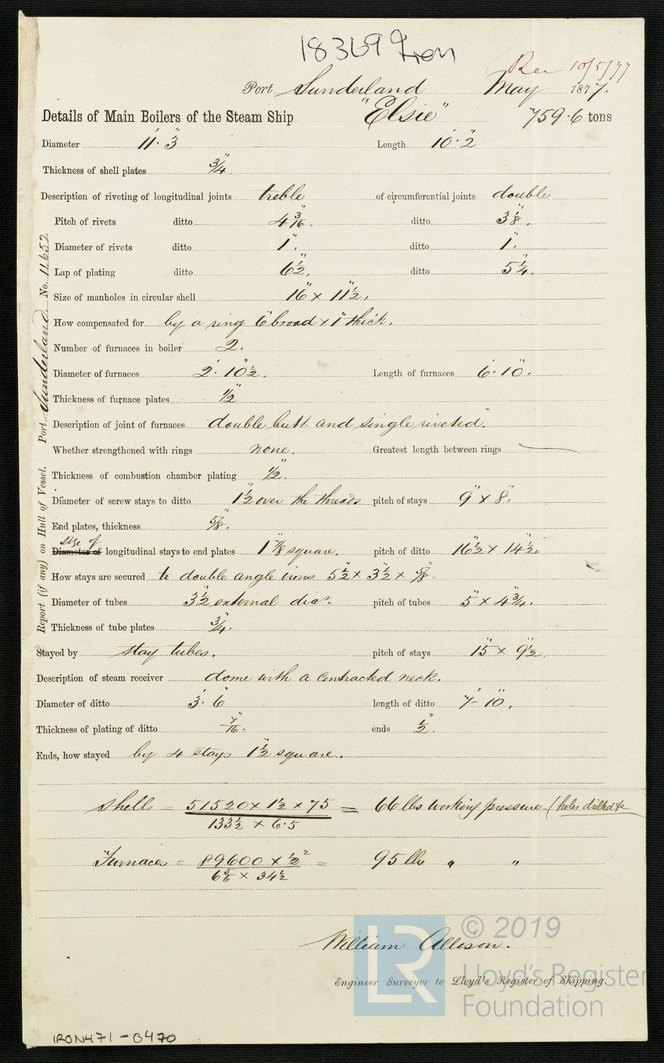 18369 Iron
Rec 10/5/77
Port Sunderland May 1877.
Details of Main Boilers of the Steam Ship "Elsie" 759.6 tons
Diameter 11'. 3" Length 10'. 2"
Thickness of shell plates 3/4".
Description of riveting of longitudinal joints treble of circumferential joints double
Pitch of rivets ditto 4 3/16". ditto 3 1/8".
Diameter of rivets ditto 1". ditto 1".
Lap of plating ditto 6 1/2". ditto 5 1/4".
Size of manholes in circular shell 16" x 11 1/2".
How compensated for by a ring 6" broad x 1" thick.
Number of furnaces in boiler 2.
Diameter of furnaces 2'. 10 1/2". Length of furnaces 6'. 10".
Thickness of furnace plates 1/2"
Description of joint of furnaces double butt and single riveted.
Whether strengthened with rings none. Greatest length between rings
Thickness of combustion chamber plating 1/2".
Diameter of screw stays to ditto 1 1/2" over the threads pitch of stays 9" x 8".
End plates, thickness 5/8".
size of
Diameter of longitudinal stays to end plates 1 7/8" square. pitch of ditto 16 1/2" x 14 1/2"
How stays are secured to double angle irons 5 1/2" x 3 1/2" x 5/8".
Diameter of tubes 3 1/2" external diar. pitch of tubes 5" x 4 3/4".
Thickness of tube plates 3/4".
Stayed by stay tubes. pitch of stays 15" x 9 1/2"
Description of steam receiver dome with a contracted neck.
Diameter of ditto 3'. 6" length of ditto 7'- 10".
Thickness of plating of ditto 7/16". ends 1/2".
Ends, how stayed by 4 stays 1 1/2" square.
Shells = 51520 x 1 1/2 x 75 = 66 lbs working pressure (holes drilled &c
133 1/2 x 6.5
Furnaces = 89600 x 1/2² = 95 lbs " "
x 34 1/2
William Allison.
Engineer Surveyor to Lloyd's Register of Shipping.
Report (if any) on Hull of Vessel. Port Sunderland No. 11652
LR © 2019
Lloyd's Register
Foundation
IRON471-0470